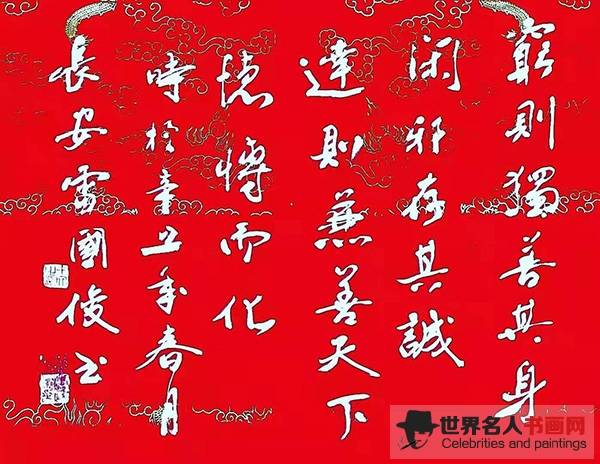 窮則獨善其身
闲邪存其誠
達則兼善天下
德博而化
時於辛丑年春月
長安雷國俊书
世界名人书画网
Celebrities and paintings